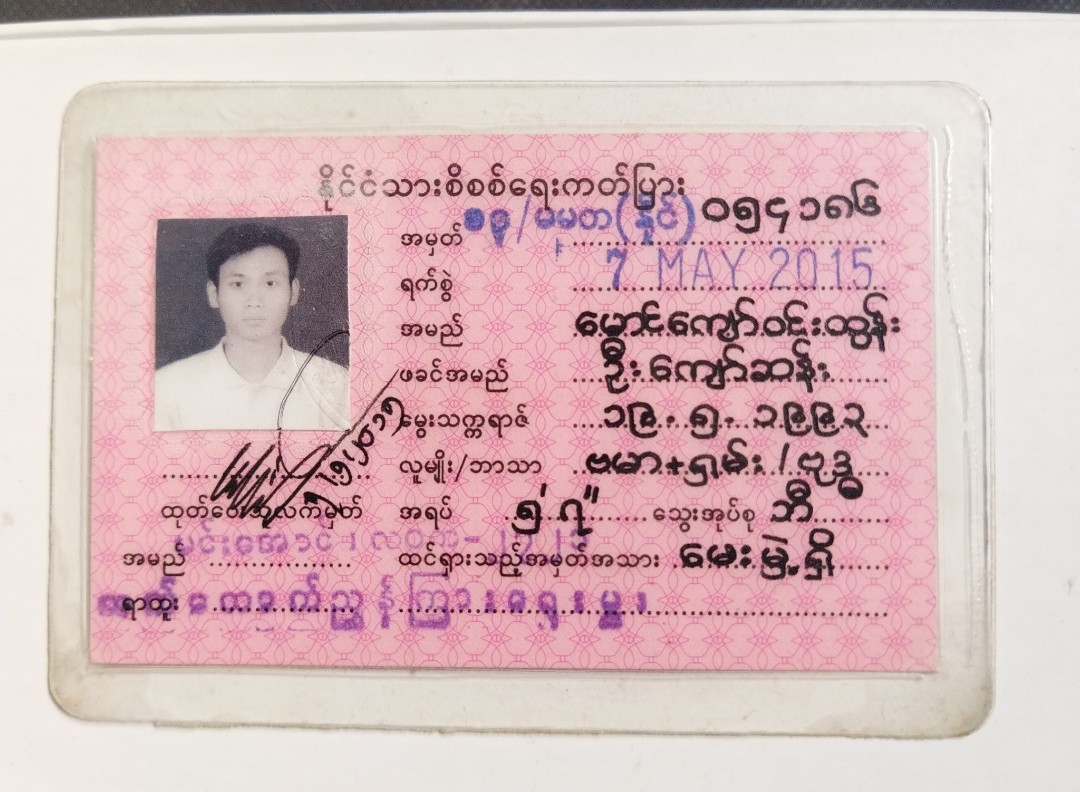 နိုင်ငံသားစိစစ်ရေးကတ်ပြား
အမှတ် ၁၃/မမတ(နိုင်) ၀၅၄၁၈၆
ရက်စွဲ 7 MAY 2015
အမည် မောင်ကျော်ဝင်းထွန်း
ဖခင်အမည် ဦးကျော်ဆန်း
မွေးသက္ကရာဇ် ၁၉.၅.၁၉၉၃
လူမျိုး/ဘာသာ ဗမာ+ရှမ်း/ဗုဒ္ဓ
အရပ် ၅' ၇" သွေးအုပ်စု ဘီ
ထင်ရှားသည့်အမှတ်အသား မေးမှဲ့ရှိ
ထုတ်ပေးသူလက်မှတ်
အမည် မင်းအောင်
ရာထူး